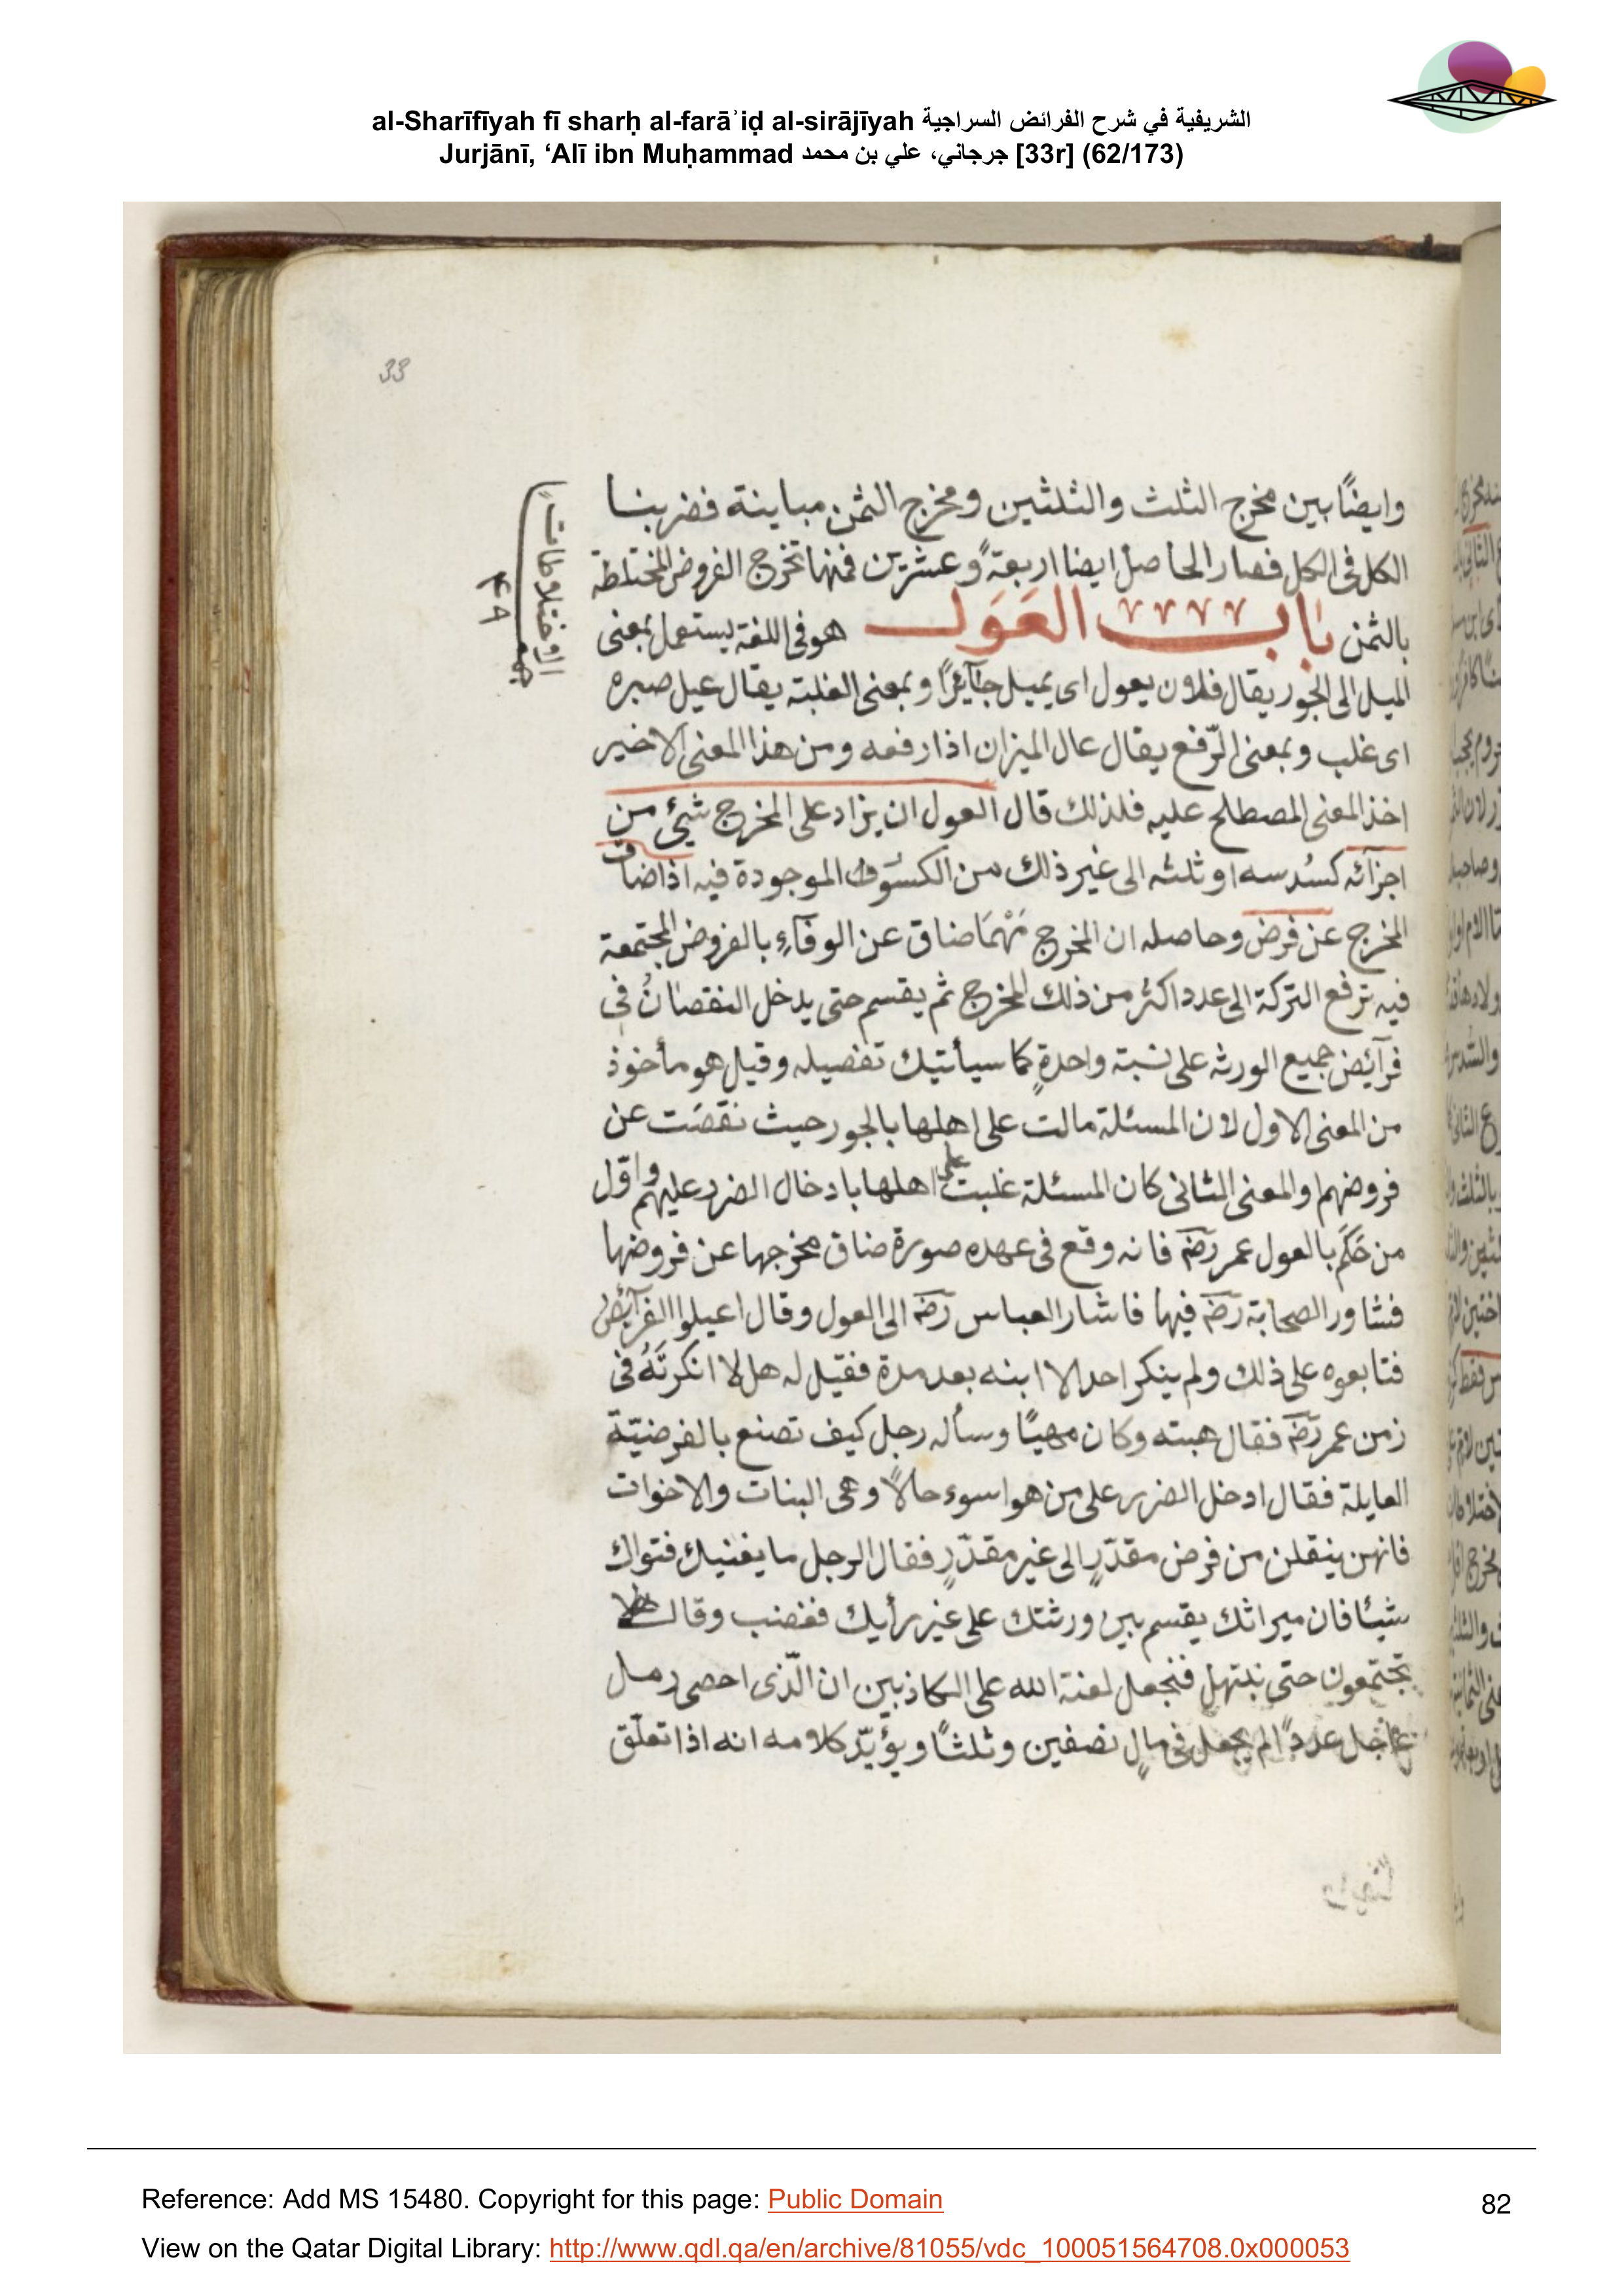 al-Sharīfīyah fī sharḥ al-farāʾiḍ al-sirājīyah الشريفية في شرح الفرائض السراجية
Jurjānī, ‘Alī ibn Muḥammad جرجاني، علي بن محمد [33r] (62/173)
33
وايضًا بين مخرج الثلث والثلثين ومخرج الثمن مباينة فضربنا
الكل فى الكل فصار الحاصل ايضا اربعةً وعشرين فمنها تخرج الفروض المختلطة
بالثمن باب العَوَل هو فى اللغة يستعمل بمعنى
الميل الى الجور يقال فلان يعول اى يميل جآئرًا وبمعنى الغلبة يقال عيل صبره
اى غلب وبمعنى الرّفع يقال عال الميزان اذا رفعه ومن هذا المعنى الاخير
اخذ المعنى المصطلح عليه فلذلك قال العول ان يزاد على المخرج شئ من
اجزآئه كسُدسه او ثلثه الى غير ذلك من الكسور الموجودة فيه اذا ضاق
المخرج عن فرض وحاصله ان المخرج مَهْمَا ضاق عن الوفآءِ بالفروض المجتمعة
فيه ترفع التركة الى عدد اكثر من ذلك المخرج ثم يقسم حتى يدخل النقصانُ فى
فرآئض جميع الورثه على نسبة واحدةٍ كما سيأتيك تفصيله وقيل هو مأخوذ
من المعنى الاول لان المسئلة مالت على اهلها بالجور حيث نقصَت عن
فروضهم والمعنى الثانى كان المسئلة غلبت على اهلها بادخال الضرر عليهم واوّل
من حَكَم بالعول عمر رضَ فانه وقع فى عهده صورة ضاق مخرجها عن فروضها
فشاور الصحابة رضَ فيها فاشار العباس رضَ الى العول وقال اعيلوا الفرآئضُ
فتابعوه على ذلك ولم ينكر احد الا ابنه بعد مدة فقيل له هلا انكرتَهُ فى
زمن عمر رضَ فقال هبته وكان مهيبًا وسأله رجل كيف تصنع بالفرضيّة
العايلة فقال ادخل الضرر على من هو اسوء حالاً وهى البنات والاخوات
فانهن ينقلن من فرض مقدّرٍ الى غير مقدّرٍ فقال الرجل ما يغنيك فتواك
شيئا فان ميراثك يقسم بين ورثتك على غير رأيك فغضب وقال
تجتمعون حتى نبتهل فنجعل لعنة الله على الكاذبين ان الّذى احصى رمل
عالج عددًا لم يجعل فى مالٍ نصفين وثلثًا ويؤيّد كلامه انه اذا تعلّق
الاختلاطات
٤٩
Reference: Add MS 15480. Copyright for this page: Public Domain
82
View on the Qatar Digital Library: http://www.qdl.qa/en/archive/81055/vdc_100051564708.0x000053